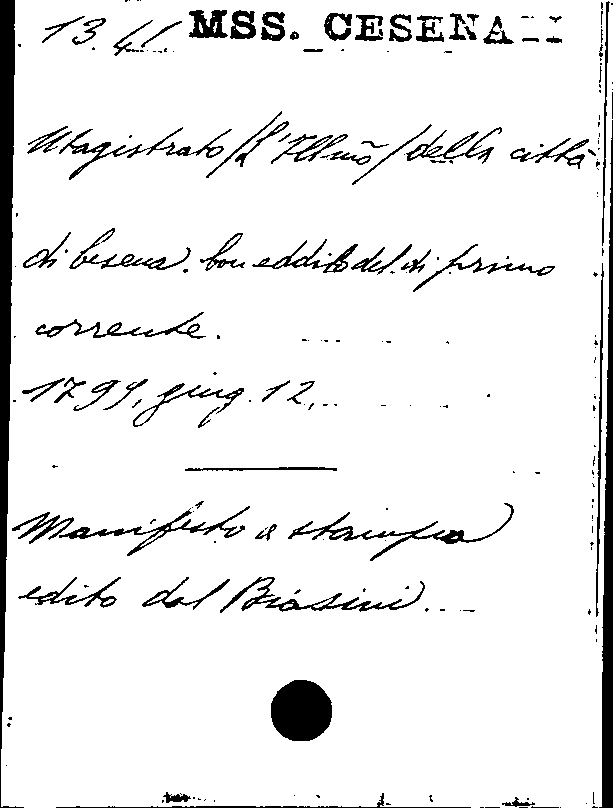 13.41 MSS. CESENA II
Magistrato /L'Illmõ/ della città
di Cesena. Con eddito del dì primo
corrente.
1799, giug. 12.
Manifesto a stampa
edito dal Biasini.